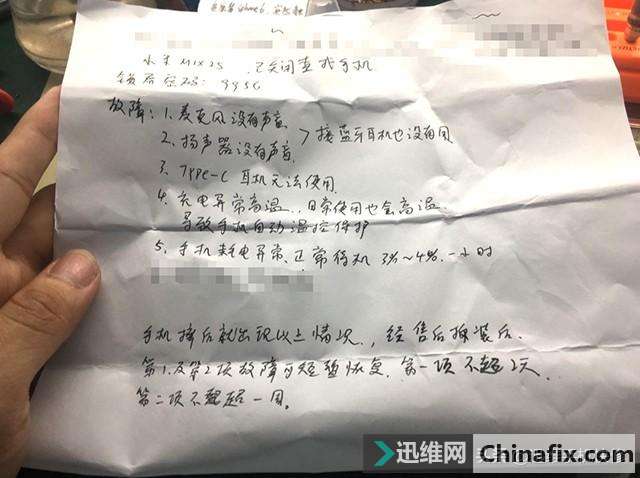 小米MIX2S 已关闭查找手机
锁屏密码: 9956
故障: 1. 麦克风没有声音
2. 扬声器没有声音 > 接蓝牙耳机也没有用
3. Type-C 耳机无法使用
4. 充电异常高温, 日常使用也会高温
导致手机自动温控保护
5. 手机耗电异常、正常待机 3%~4%. 一小时
手机摔后就出现以上情况, 经售后拆装后.
第1及第2项故障可短暂恢复. 第一项不超2天.
第二项不超一周。
迅维网
Chinafix.com